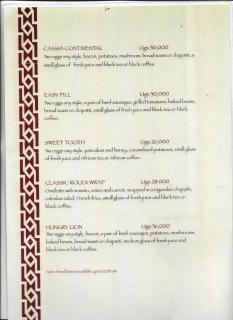 CASSIA CONTINENTAL Ugs 30,000
Two eggs any style, bacon, potatoes, mushroom, bread toast or chapatti, a
small glass of fresh juice and black tea or black coffee.
EASY FILL Ugs 30,000
Two eggs any style, a pair of beef sausages, grilled tomatoes, baked beans,
bread toast or chapatti, small glass of fresh juice and black tea or black
coffee.
SWEET TOOTH Ugs 26,000
Two eggs any style, pancakes and honey, caramelized potatoes, small glass
of fresh juice and African tea or African coffee.
CLASSIC ROLEX WRAP Ugs 28,000
Omelette with tomato, onion and carrot, wrapped in a Ugandan chapatti,
coleslaw salad, French fries, small glass of fresh juice and black tea or
black coffee.
HUNGRY LION Ugs 36,000
Two eggs any style, bacon, a pair of beef sausages, potatoes, mushrooms,
baked beans, bread toast or chapatti, medium glass of fresh juice and
black tea or black coffee.
Note: breakfast is available up to 12:00 am